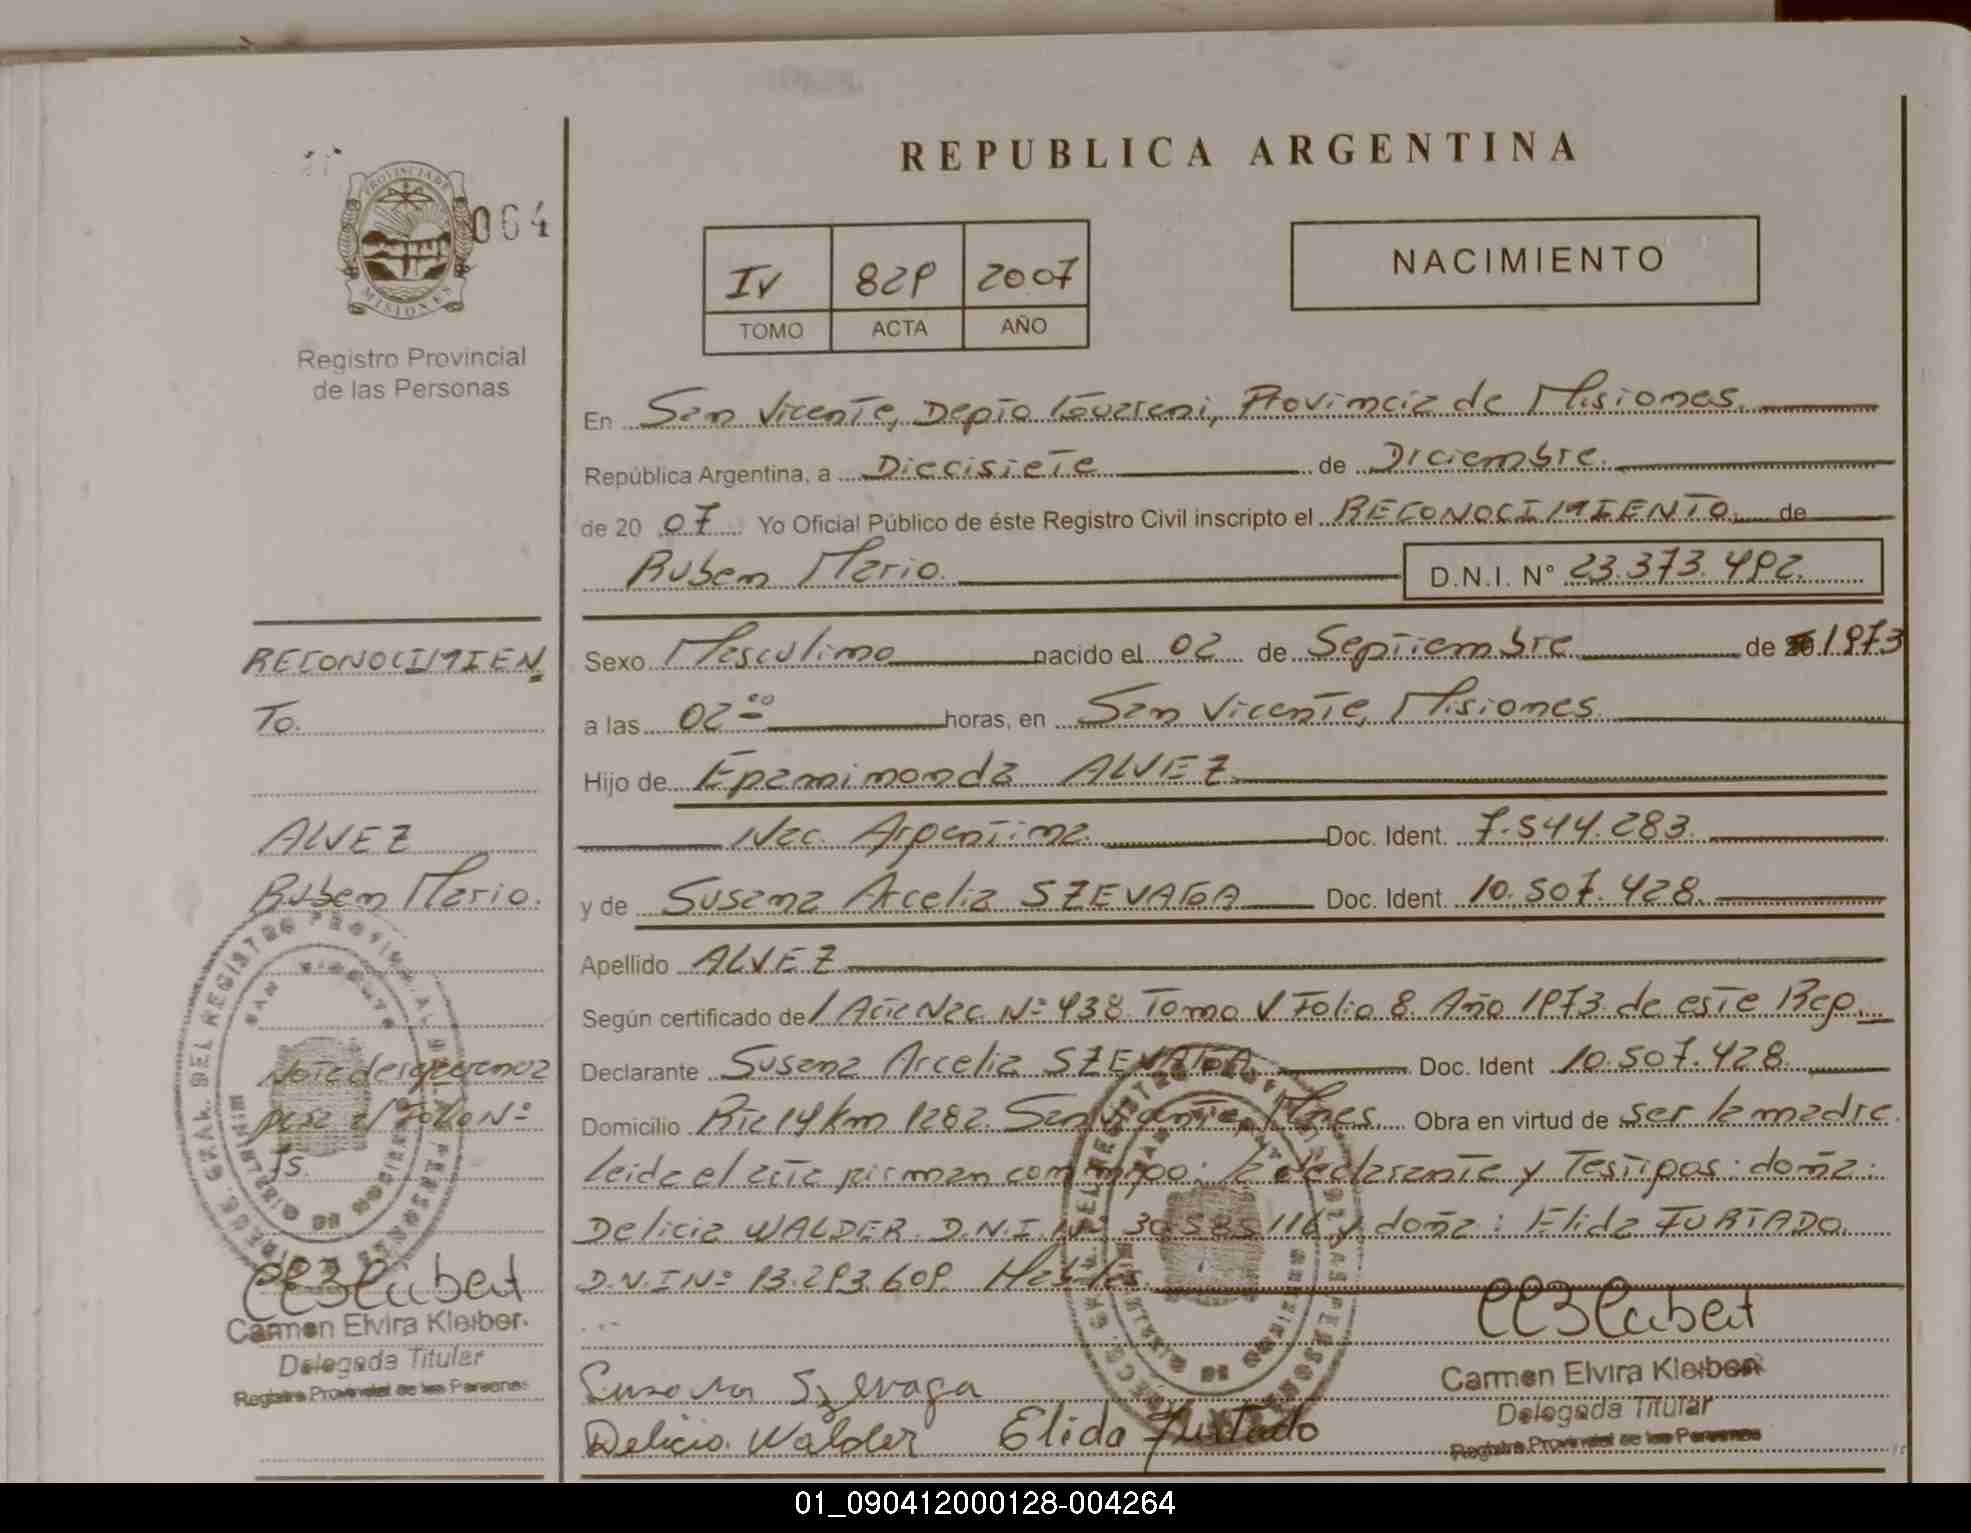 REPUBLICA ARGENTINA
PROVINCIA DE
MISIONES
064
Registro Provincial
de las Personas
IV 829 2007
TOMO ACTA AÑO
NACIMIENTO
En San Vicente, Depto Guarani, Provincia de Misiones.
República Argentina, a Diecisiete de Diciembre.
de 20 07 Yo Oficial Público de éste Registro Civil inscripto el RECONOCIMIENTO. de
Ruben Mario. D.N.I. N° 23.373.492.
Sexo Masculino nacido el 02 de Septiembre de 1973
a las 02 00 horas, en San Vicente, Misiones
Hijo de Epaminonda ALVEZ
Nac. Argentina. Doc. Ident. 7.544.283.
y de Susana Arcelia SZEVAGA Doc. Ident. 10.507.428.
Apellido ALVEZ
Según certificado de / Acta Nac. Nº 438 Tomo V Folio 8 Año 1973 de este Reg.
Declarante Susana Arcelia SZEVAGA Doc. Ident 10.507.428.
Domicilio Rta 14 km 1282. San Vicente, Mnes. Obra en virtud de ser la madre.
Leida el acta firman conmigo: la declarante y Testigos: doña:
Delicia WALDER. D.N.I. Nº 30.585.116 y doña: Elida FURTADO.
D.N.I Nº 13.293.609. Habiles.
Susana Szevaga
Delicia Walder Elida Furtado
Carmen Elvira Kleiber
Delegada Titular
Registro Provincial de las Personas
RECONOCIMIEN
To.
ALVEZ
Ruben Mario.
el Folio Nº
Carmen Elvira Kleiber
Delegada Titular
Registro Provincial de las Personas
01_090412000128-004264